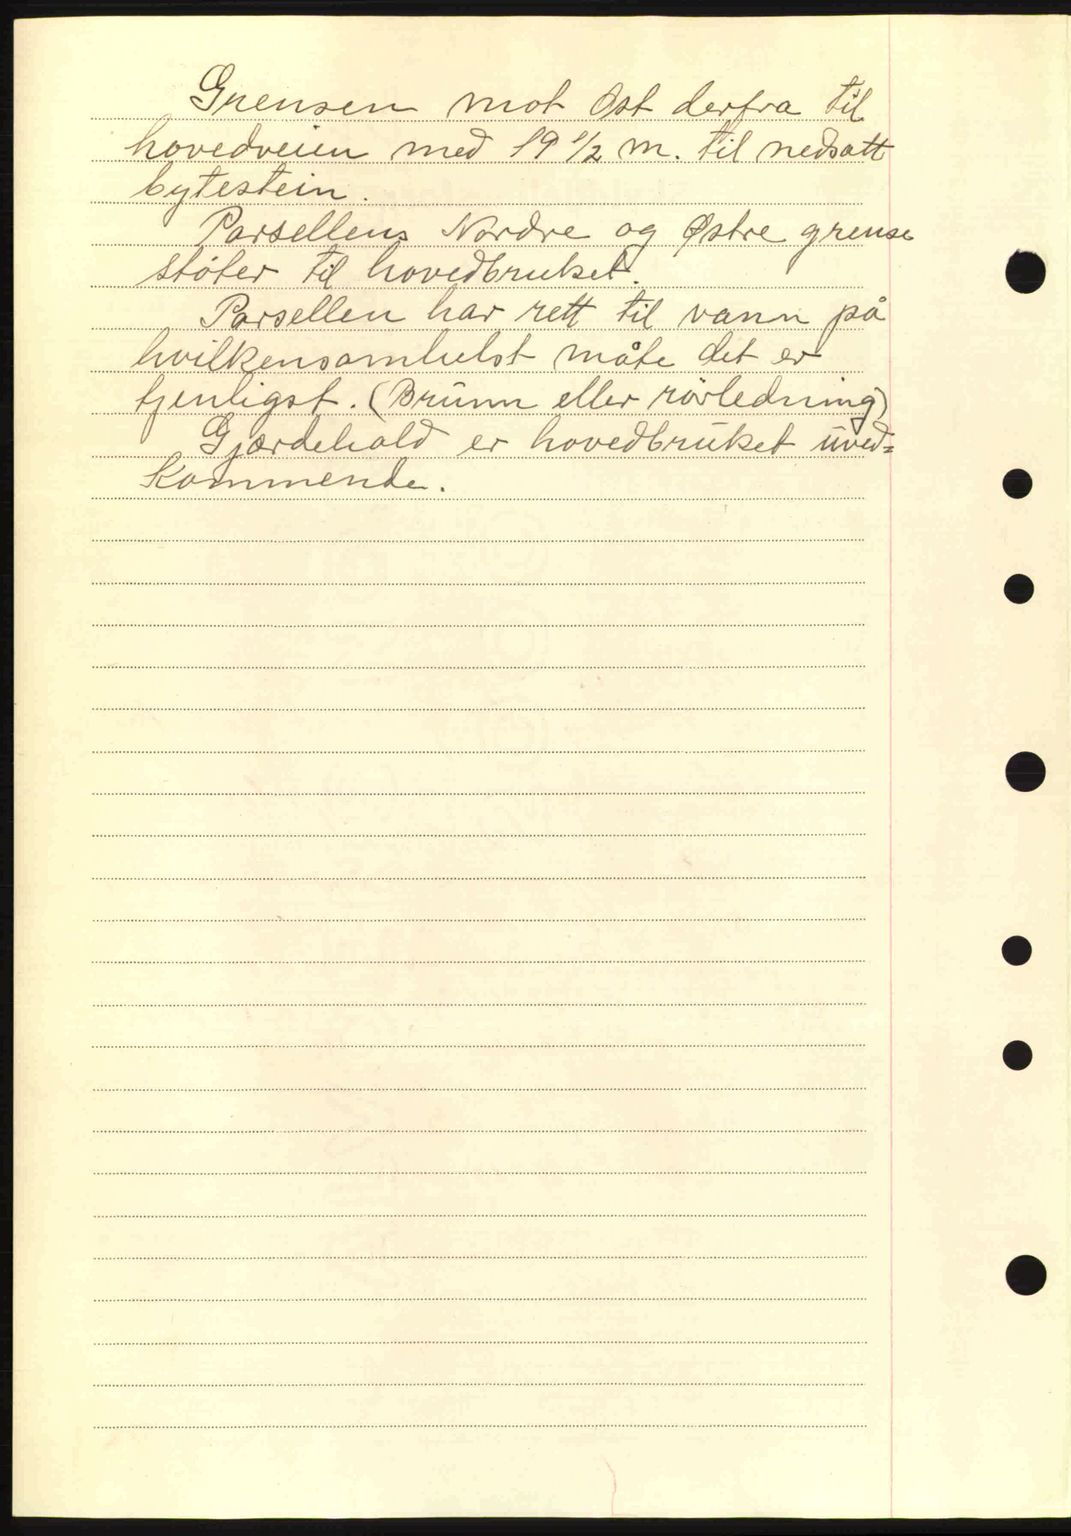 Grensen mot Øst derfra til
hovedveien med 19 1/2 m. til nedsatt
bytestein.
Parsellens Nordre og Østre grense
støter til hovedbruket.
Parsellen har rett til vann på
hvilkensomhelst måte det er
tjenligst. (Brunn eller rörledning)
Gjærdehold er hovedbruket uved=
kommende.